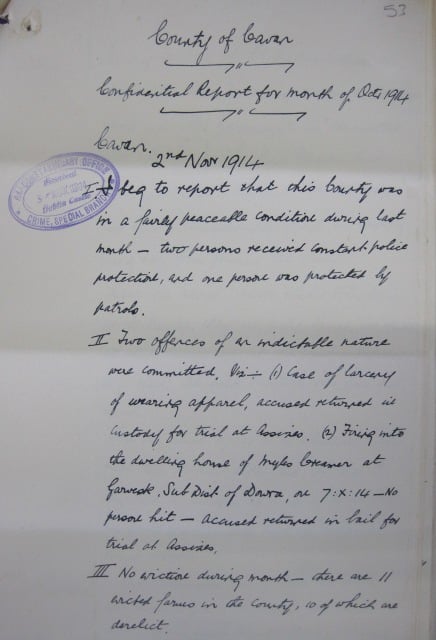 53
County of Cavan
Confidential Report for month of Oct 1914
Cavan.
2nd Nov 1914
CONSTABULARY OFFICE
Received
Dublin Castle
CRIME, SPECIAL BRANCH
I. I beg to report that this County was
in a fairly peaceable condition during last
month — two persons received constant police
protection, and one person was protected by
patrols.
II Two offences of an indictable nature
were committed, Viz:— (1) Case of larceny
of wearing apparel, accused returned in
custody for trial at Assizes. (2) Firing into
the dwelling house of Myles Creamer at
Sub Dist of Dowra, on 7:X:14 — No
person hit — accused returned in bail for
trial at Assizes.
III No eviction during month — there are 11
evicted farms in the County, 10 of which are
derelict.